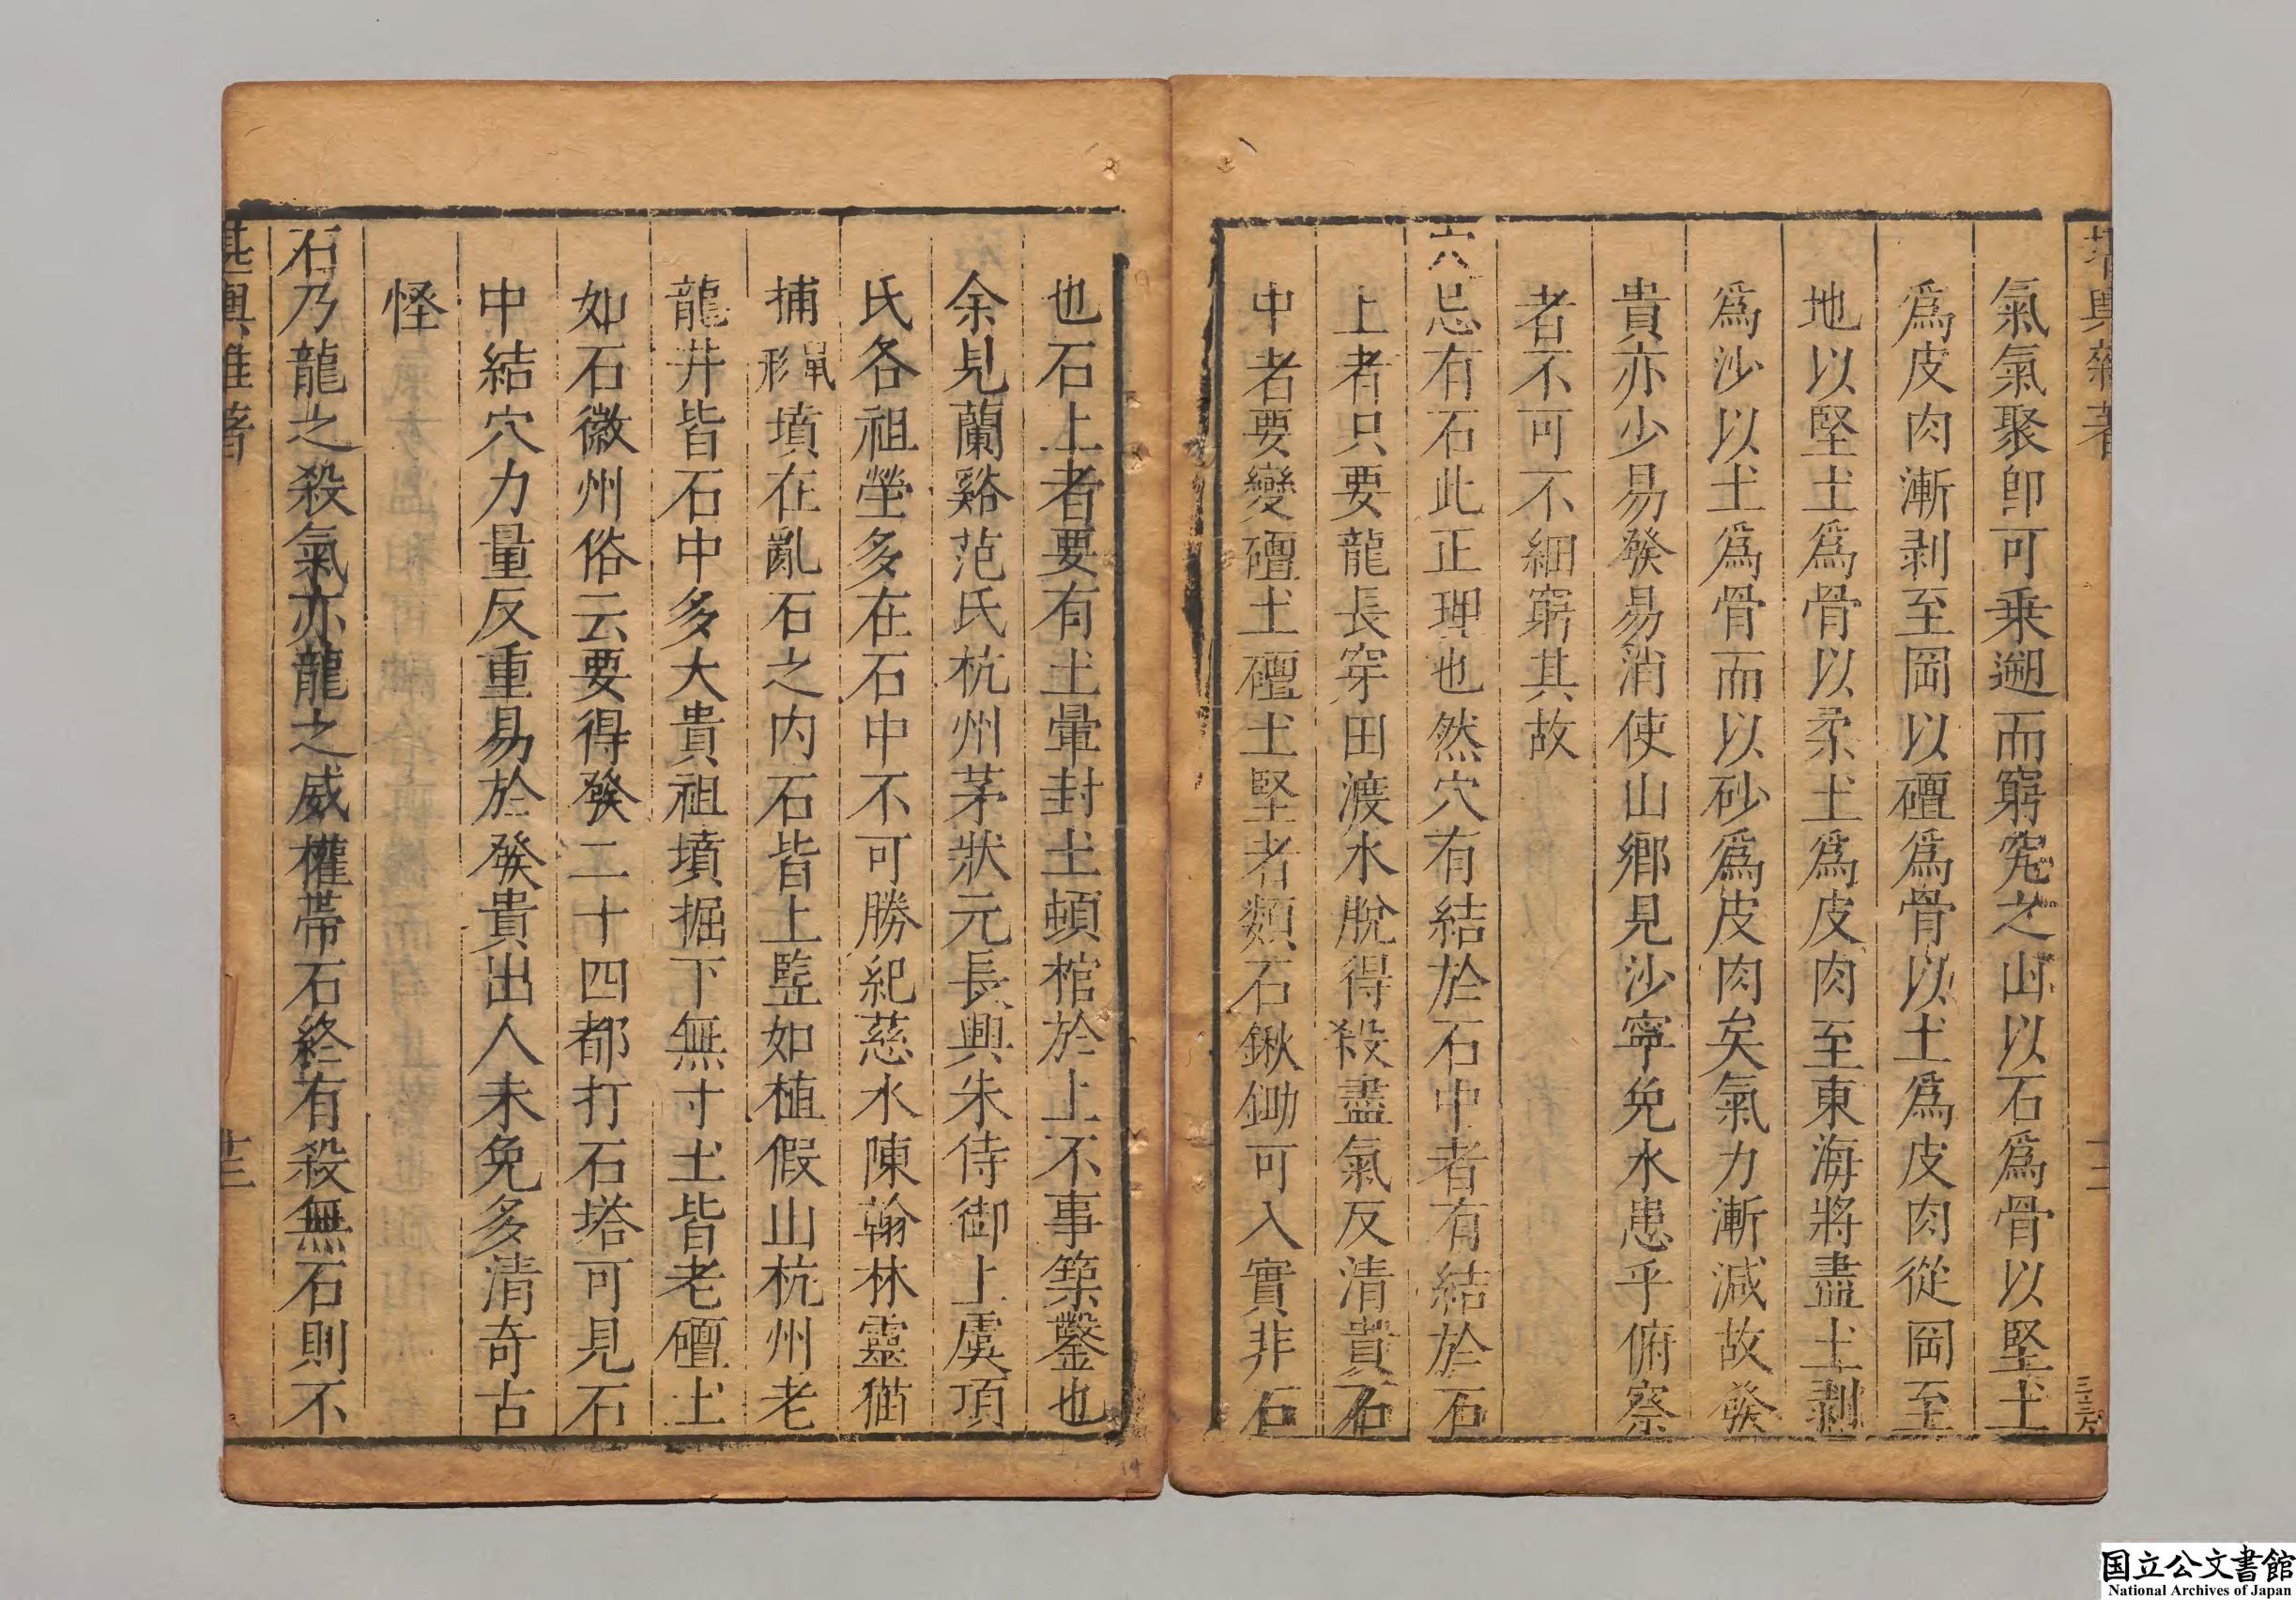 堪輿雜著
十二
氣氣聚卽可乗遡而窮究之山以石爲骨以堅土
爲皮肉漸剥至岡以礓爲骨以土爲皮肉從岡至
地以堅土爲骨以柔土爲皮肉至東海將盡土剥
爲沙以土爲骨而以砂爲皮肉矣氣力漸減故發
貴亦少易發易消使山鄉見沙寧免水患乎俯察
者不可不細窮其故
六忌有石此正理也然穴有結於石中者有結於石
上者只要龍長穿田渡水脫得殺盡氣反清貴石
中者要變礓土礓土堅者類石鍬鋤可入實非石
也石上者要有土暈封土頓棺於上不事築鑿也
余見蘭谿范氏杭州茅狀元長興朱侍御上虞項
氏各祖塋多在石中不可勝紀慈水陳翰林靈猫
捕鼠形墳在亂石之内石皆上竪如植假山杭州老
龍井皆石中多大貴祖墳掘下無寸土皆老礓土
如石徽州俗云要得發二十四都打石塔可見石
中結穴力量反重易於發貴出人未免多清奇古
怪
石乃龍之殺氣亦龍之威權帶石終有殺無石則不
堪輿雜著
十三
国立公文書館
National Archives of Japan